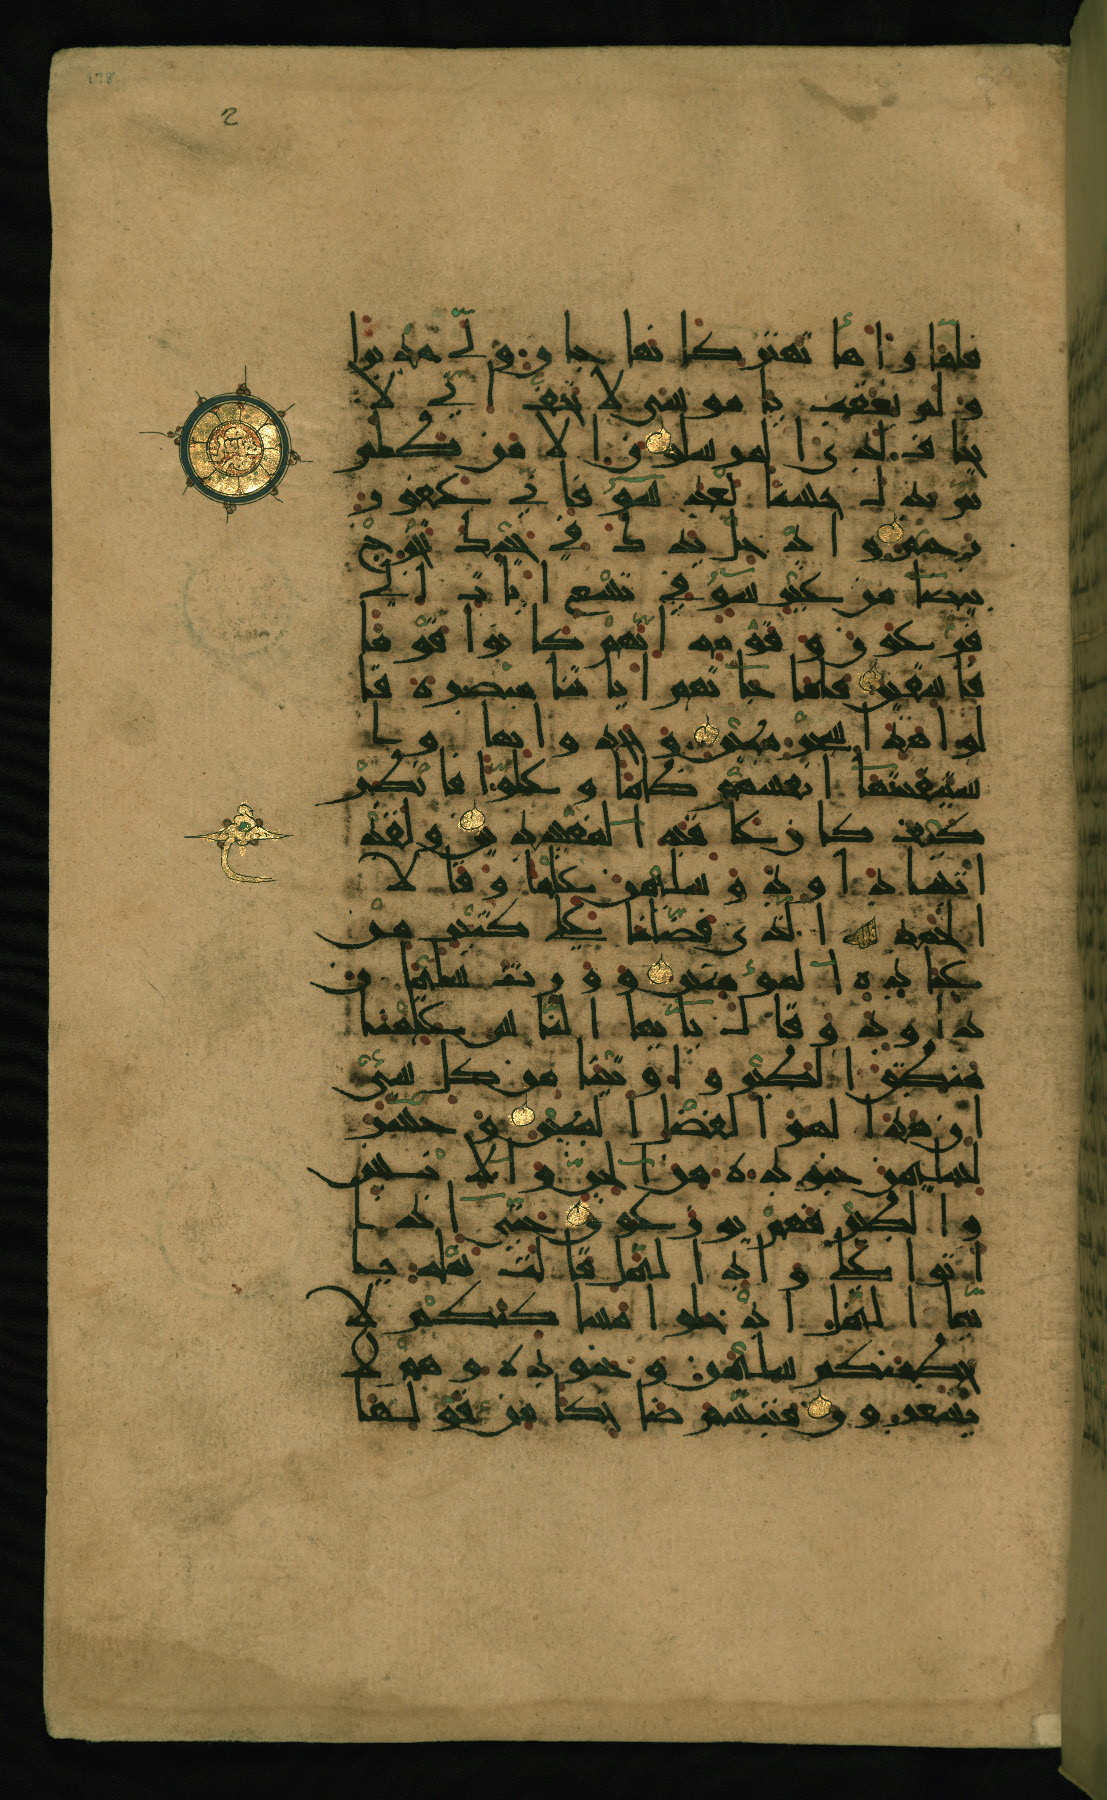 2
فلما رءاها تهتز كانها جان ولى مدبرا
و لم يعقب يا موسى لا تخف انى لا
يخاف لدى المرسلون الا من ظلم
ثم بدل حسنا بعد سوء فانى غفور
رحيم و ادخل يدك في جيبك تخرج
بيضاء من غير سوء في تسع ايات الى
فرعون و قومه انهم كانوا قوما
فاسقين فلما جاءتهم اياتنا مبصرة قا
لوا هذا سحر مبين و جحدوا بها و ا
ستيقنتها انفسهم ظلما و علوا فانظر
ع
كيف كان عاقبة المفسدين و لقد
اتينا داود و سليمن علما و قالا
الحمد لله الذى فضلنا على كثير من
عباده المؤمنين و ورث سليمن
داود و قال يايها الناس علمنا
منطق الطير و اوتينا من كل شىء
ان هذا لهو الفضل المبين و حشر
لسليمن جنوده من الجن و الانس
و الطير فهم يوزعون حتى اذا
اتوا على واد النمل قالت نملة يا
يها النمل ادخلوا مسكنكم لا
يحطمنكم سليمن و جنوده و هم لا
يشعرون فتبسم ضاحكا من قولها